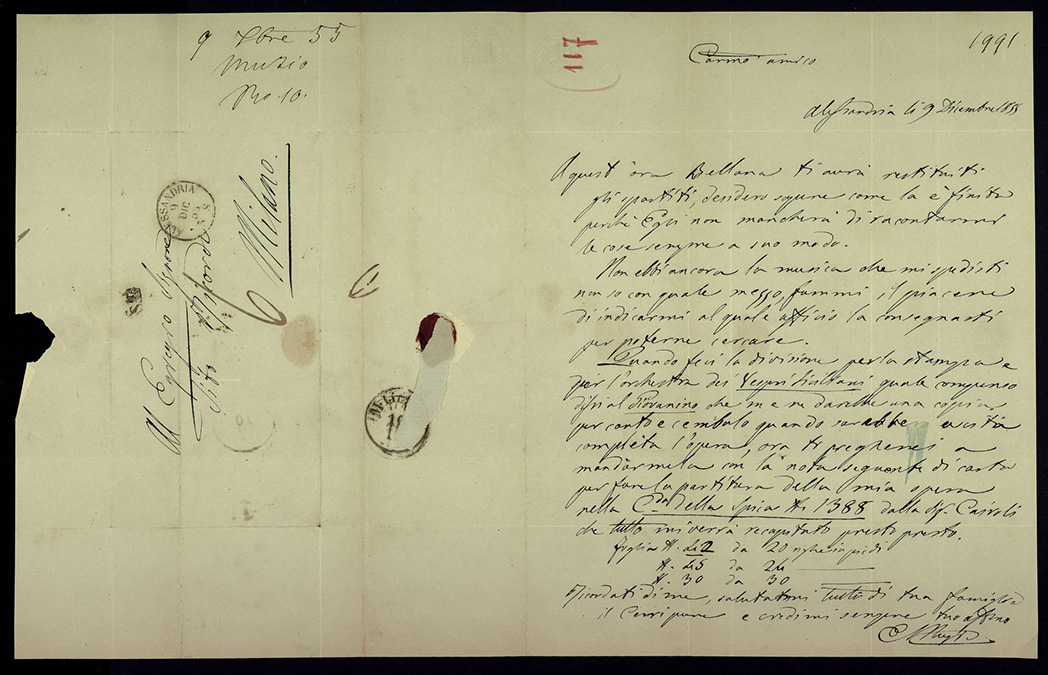 9 Xbre 55
Muzio
Ro. 10.
All Egregio Signore
Tito Ricordi
6 Milano.
ALESSANDRIA
9
DIC
117
1991
Carmo amico
Alessandria li 9 Dicembre 1855
A quest'ora Bellana ti avrà restituiti
gli spartiti, desidero sapere come la è finita
perché Egli non mancherà di raccontarmi
le cose sempre a suo modo.
Non ebbi ancora la musica che mi spedisti
non so con quale mezzo, fammi il piacere
di indicarmi al quale officio la consegnasti
per poterne cercare.
Quando feci la divisione per la stampa e
per l'orchestra dei Vespri Siciliani quale compenso
dissi al Giovanino che me ne darebbe una copia
per canto e cembalo quando sarebbe uscita
completa l'opera, ora ti pregherei a
mandarmela con la nota seguente di carta
per fare la partitura della mia opera
nella Cda della Spiga N. 1388 dalla Sig.
che tutto mi verrà recapitato presto presto.
foglia N. da 20 righe
N. 45 da 24
N. 30 da 30
Ricordati di me, salutatemi tutti di tua famiglia
il Cerri pure e credimi sempre tuo affmo
EMuzio